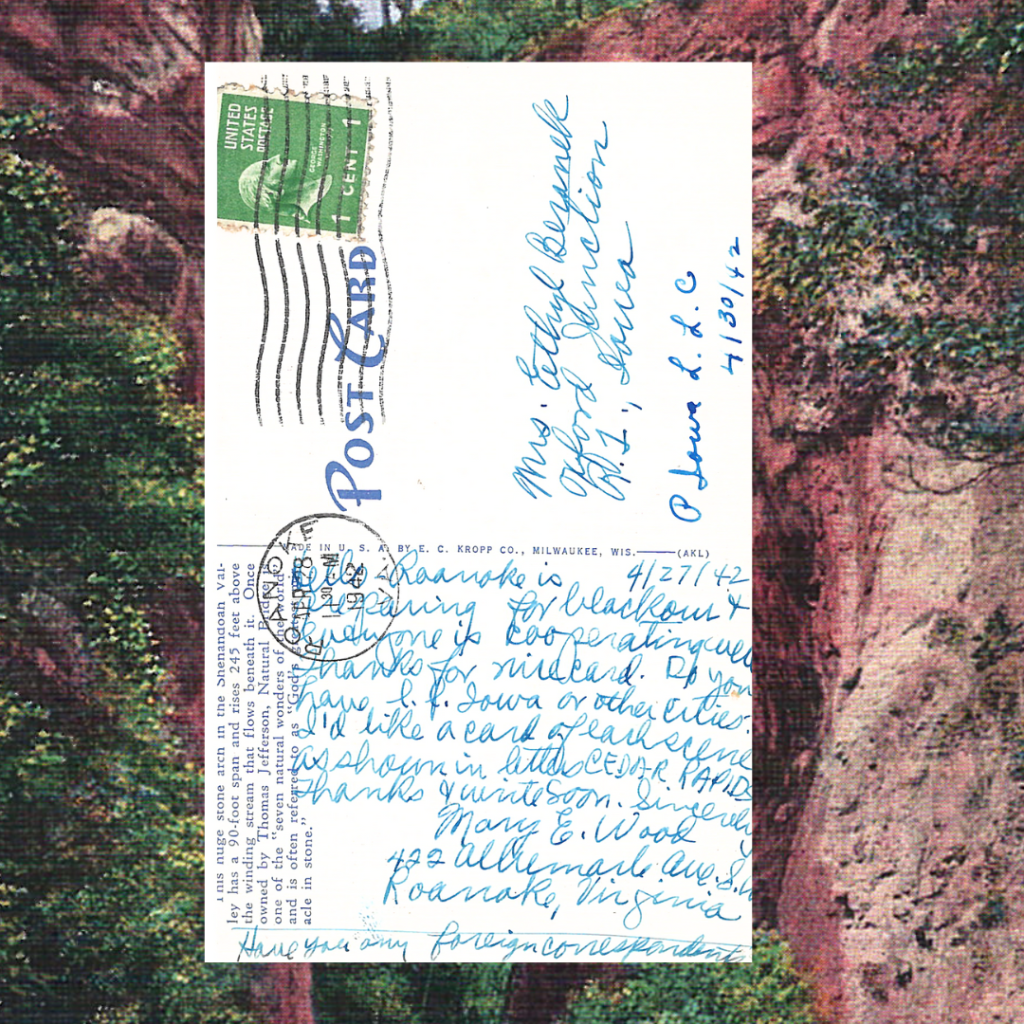 UNITED
STATES
POSTAGE
GEORGE
WASHINGTON
1 CENT 1
POST CARD
ROANOKE
APR 28
1942
VA.
MADE IN U. S. A. BY E. C. KROPP CO., MILWAUKEE, WIS. (AKL)
This huge stone arch in the Shenandoah Val-
ley has a 90-foot span and rises 245 feet above
the winding stream that flows beneath it. Once
owned by Thomas Jefferson, Natural Bridge is
one of the "seven natural wonders of the world"
and is often referred to as "God's
acle in stone."
Mrs. Ethyl Beranek
Oxford Junction
R. 1., Iowa
P Iowa L. L. C
4/30/42
4/27/42
Hello - Roanoke is
preparing for blackout &
everyone is cooperating well
Thanks for nice card. Do you
have L. L. Iowa or other cities.
I'd like a card of each scene
as shown in letters CEDAR RAPIDS
Thanks & write soon. Sincerely
Mary E. Wood
422 Albemarle Ave. S.W
Roanoke, Virginia
Have you any foreign correspondents